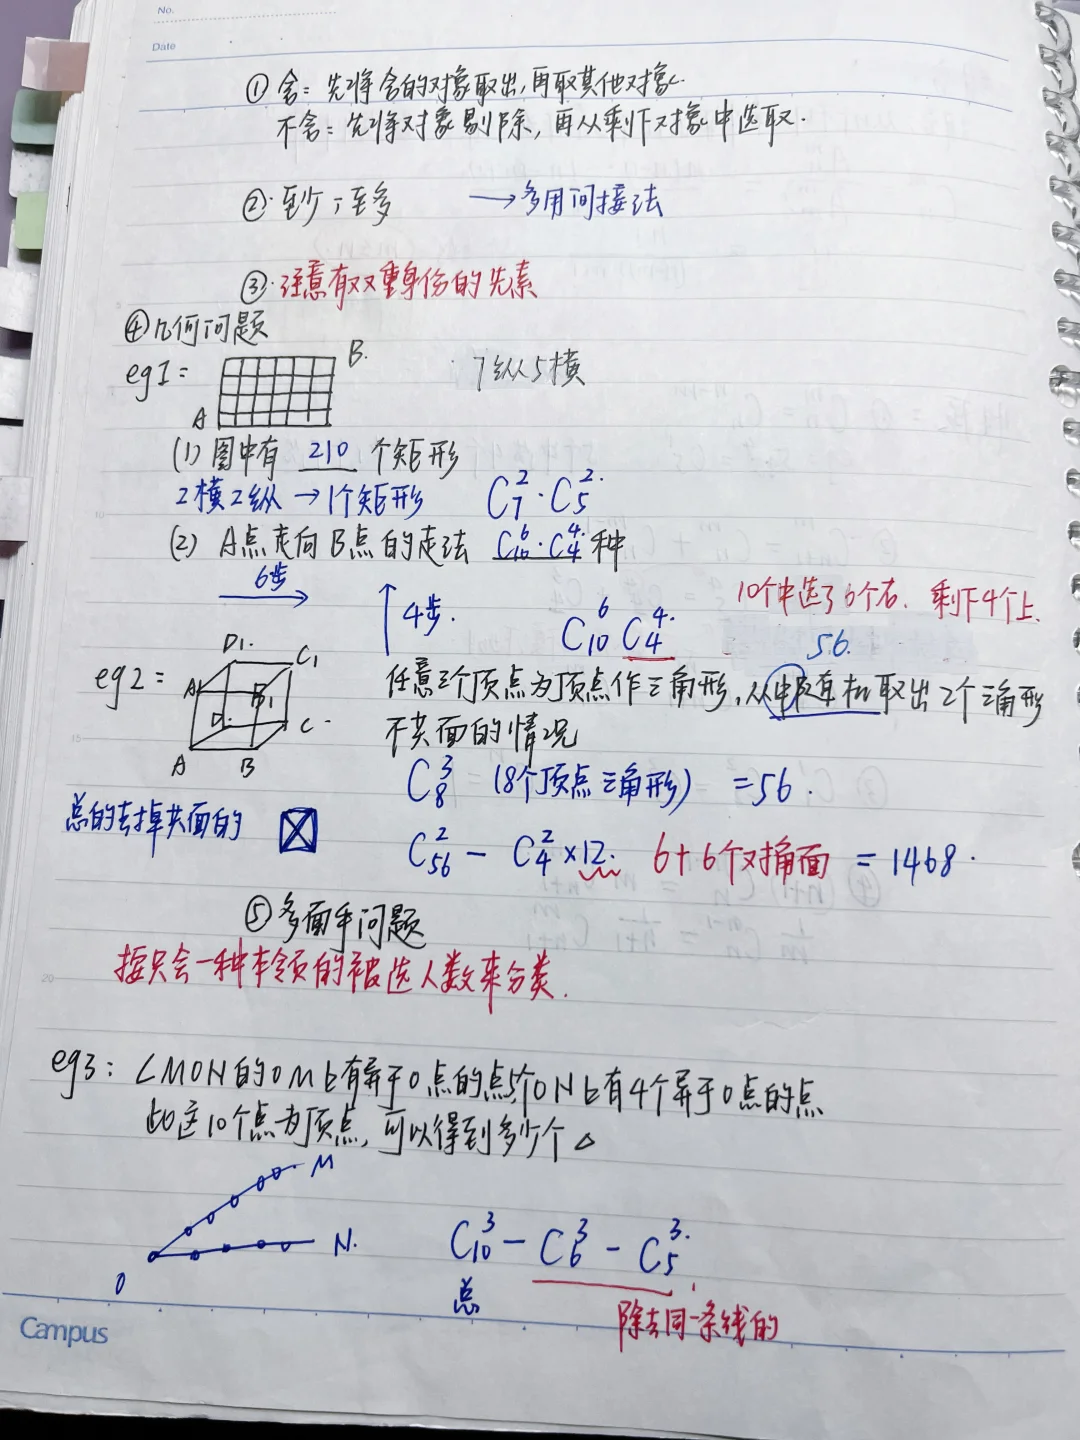 No.
Date
① 含：先将含的对象取出，再取其他对象.
不含：先将对象剔除，再从剩下对象中选取.
②·至少，至多 →多用间接法
③·注意有双重身份的元素
④几何问题
eg1： B. 7纵5横
A
(1) 图中有 210 个矩形
2横2纵→1个矩形 C₇²·C₅²
(2) A点走向B点的走法 C₁₀⁶·C₄⁴ 种
6步 ↑4步. C₁₀⁶ C₄⁴ 10个中选了6个右. 剩下4个上.
56.
eg2： D₁ C₁ A₁ B₁ D C A B
任意三个顶点为顶点作三角形，从中随机取出2个三角形
不共面的情况
C₈³ (8个顶点三角形) =56.
总的去掉共面的
C₅₆² - C₄²×12 6+6个对角面 =1468.
⑤多面手问题
按只会一种本领的被选人数来分类.
eg3：∠MON的OM上有异于O点的点5个ON上有4个异于O点的点
以这10个点为顶点，可以得到多少个△
M
N.
O
C₁₀³ - C₆³ - C₅³.
总
除去同一条线的
Campus